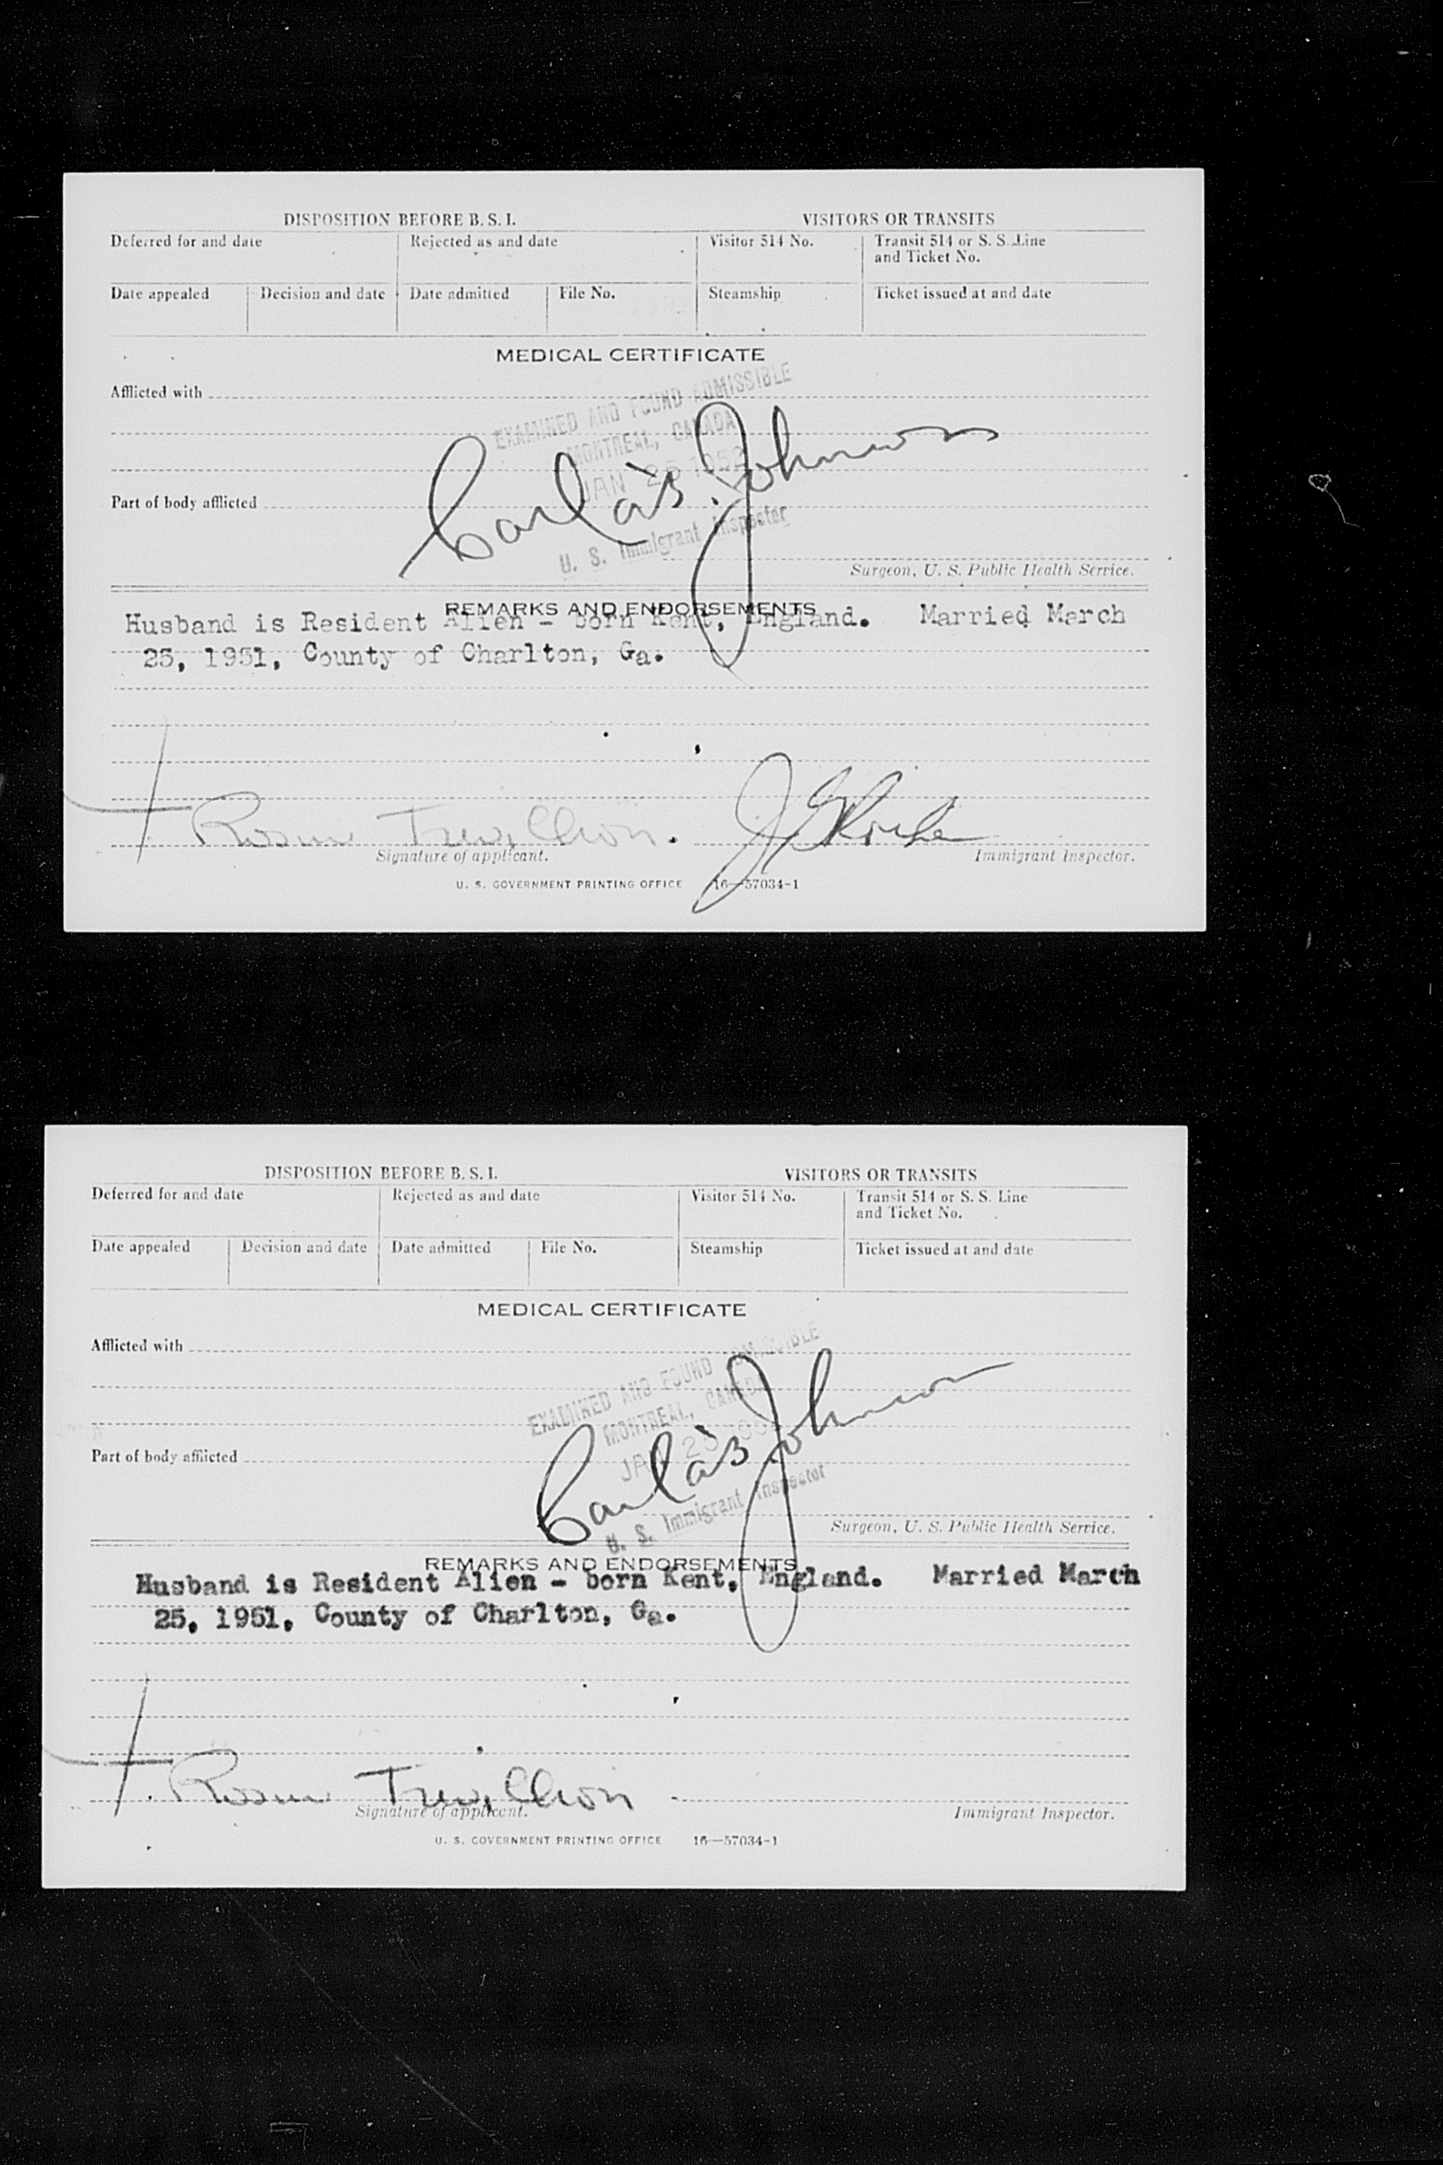 DISPOSITION BEFORE B. S. I.
VISITORS OR TRANSITS
Deferred for and date
Rejected as and date
Visitor 514 No.
Transit 514 or S. S. Line
and Ticket No.
Date appealed
Decision and date
Date admitted
File No.
Steamship
Ticket issued at and date
MEDICAL CERTIFICATE
Afflicted with
EXAMINED AND FOUND ADMISSIBLE
MONTREAL, CANADA
JAN 25 1952
Johnson
Part of body afflicted
U. S. Immigrant Inspector
Surgeon, U. S. Public Health Service.
REMARKS AND ENDORSEMENTS
Husband is Resident Alien - born Kent, England. Married March
25, 1951, County of Charlton, Ga.
Trevillion.
Signature of applicant.
Immigrant Inspector.
U. S. GOVERNMENT PRINTING OFFICE 16—57034-1
DISPOSITION BEFORE B. S. I.
VISITORS OR TRANSITS
Deferred for and date
Rejected as and date
Visitor 514 No.
Transit 514 or S. S. Line
and Ticket No.
Date appealed
Decision and date
Date admitted
File No.
Steamship
Ticket issued at and date
MEDICAL CERTIFICATE
Afflicted with
EXAMINED AND FOUND ADMISSIBLE
MONTREAL, CANADA
JAN 25
Johnson
Part of body afflicted
U. S. Immigrant Inspector
Surgeon, U. S. Public Health Service.
REMARKS AND ENDORSEMENTS
Husband is Resident Alien - born Kent, England. Married March
25, 1951, County of Charlton, Ga.
Trevillion
Signature of applicant.
Immigrant Inspector.
U. S. GOVERNMENT PRINTING OFFICE 16—57034-1